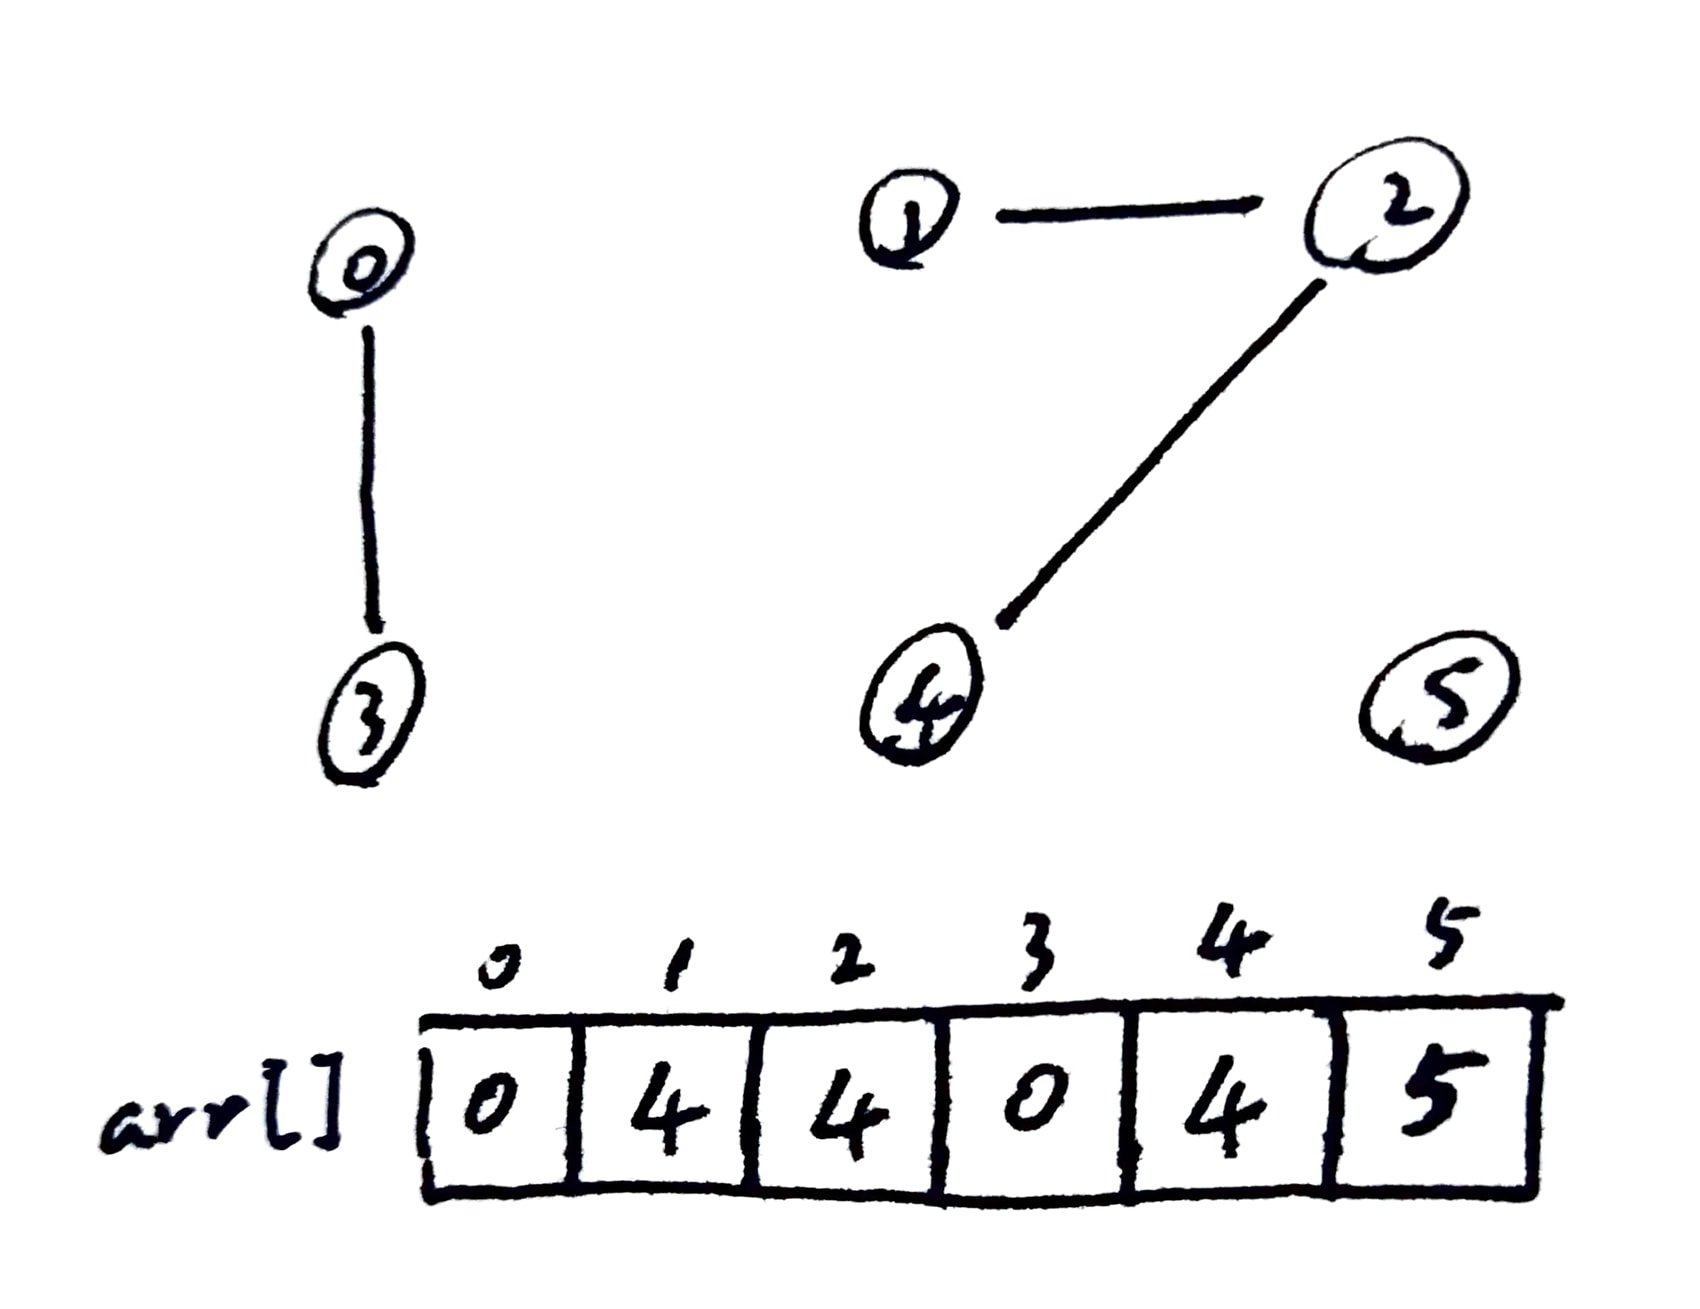 1 2
0
3 4 5
0 1 2 3 4 5
arr[] 0 4 4 0 4 5